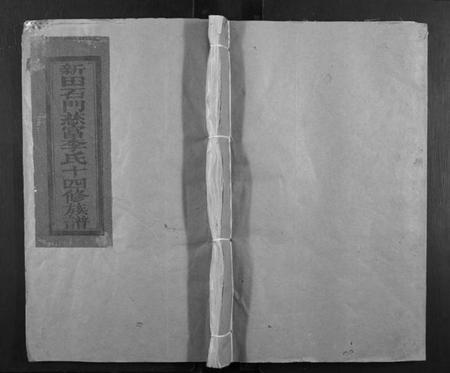 新田石門慈當李氏十四修族譜